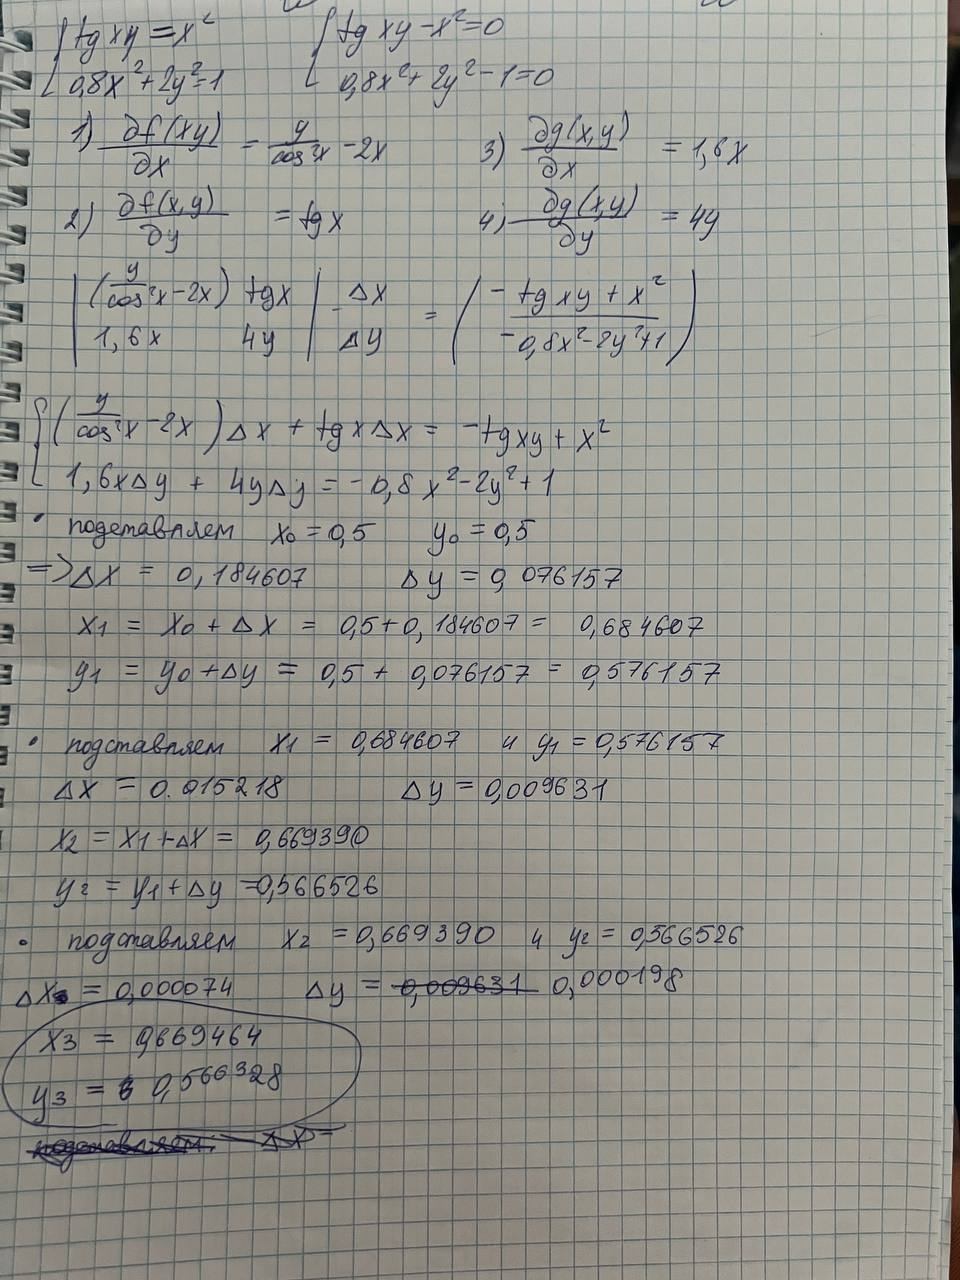 { tg xy = x² { tg xy - x² = 0
0,8x² + 2y² = 1 0,8x² + 2y² - 1 = 0
1) ∂f(xy)/∂x = y/cos²x - 2x 3) ∂g(x,y)/∂x = 1,6x
2) ∂f(x,y)/∂y = tgx 4) ∂g(x,y)/∂y = 4y
| (y/cos²x - 2x) tgx | · Δx = ( - tg xy + x²
| 1,6x 4y | Δy - 0,8x² - 2y² + 1 )
{ (y/cos²x - 2x) Δx + tg x Δx = - tg xy + x²
1,6xΔy + 4yΔy = - 0,8x² - 2y² + 1
• подставляем x₀ = 0,5 y₀ = 0,5
=> Δx = 0,184607 Δy = 0,076157
x₁ = x₀ + Δx = 0,5 + 0,184607 = 0,684607
y₁ = y₀ + Δy = 0,5 + 0,076157 = 0,576157
• подставляем x₁ = 0,684607 и y₁ = 0,576157
Δx = 0.015218 Δy = 0,009631
x₂ = x₁ + Δx = 0,669390
y₂ = y₁ + Δy = 0,566526
• подставляем x₂ = 0,669390 и y₂ = 0,566526
Δx = 0,000074 Δy = 0,009631 0,000198
x₃ = 0,669464
y₃ = 0,566328
подставляем Δx =